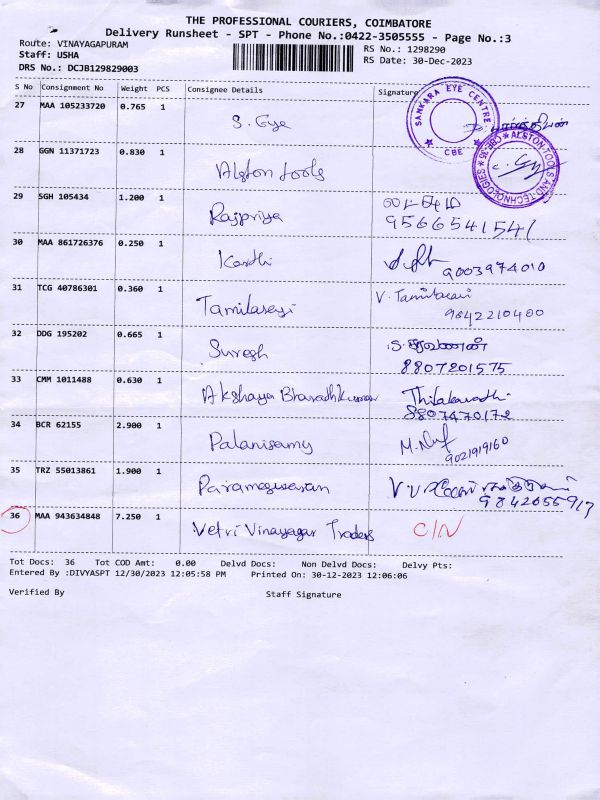 THE PROFESSIONAL COURIERS, COIMBATORE
Delivery Runsheet - SPT - Phone No.:0422-3505555 - Page No.:3
Route: VINAYAGAPURAM
RS No.: 1298290
Staff: USHA
RS Date: 30-Dec-2023
DRS No.: DCJB129829003
S No Consignment No Weight PCS Consignee Details Signature
27 MAA 105233720 0.765 1
S. Eye
SANKARA EYE CENTRE
CBE
28 GGN 11371723 0.830 1
Alston tools
ALSTON TOOLS AND TECHNOLOGIES CBE-35
29 SGH 105434 1.200 1
Rajpriya
9566541541
30 MAA 861726376 0.250 1
Karthi
9003974010
31 TCG 40786301 0.360 1
Tamilaselvi V. Tamilarasi
9842210400
32 DDG 195202 0.665 1
Suresh ச. சரவணன்
8807201575
33 CMM 1011488 0.630 1
Akshaya Bharathkumar Thilakavathi
8807470172
34 BCR 62155 2.900 1
Palanisamy
9021919160
35 TRZ 55013861 1.900 1
Parameswaran
9842055917
36 MAA 943634848 7.250 1
Vetri Vinayagar Traders C/N
Tot Docs: 36 Tot COD Amt: 0.00 Delvd Docs: Non Delvd Docs: Delvy Pts:
Entered By :DIVYASPT 12/30/2023 12:05:58 PM Printed On: 30-12-2023 12:06:06
Verified By Staff Signature